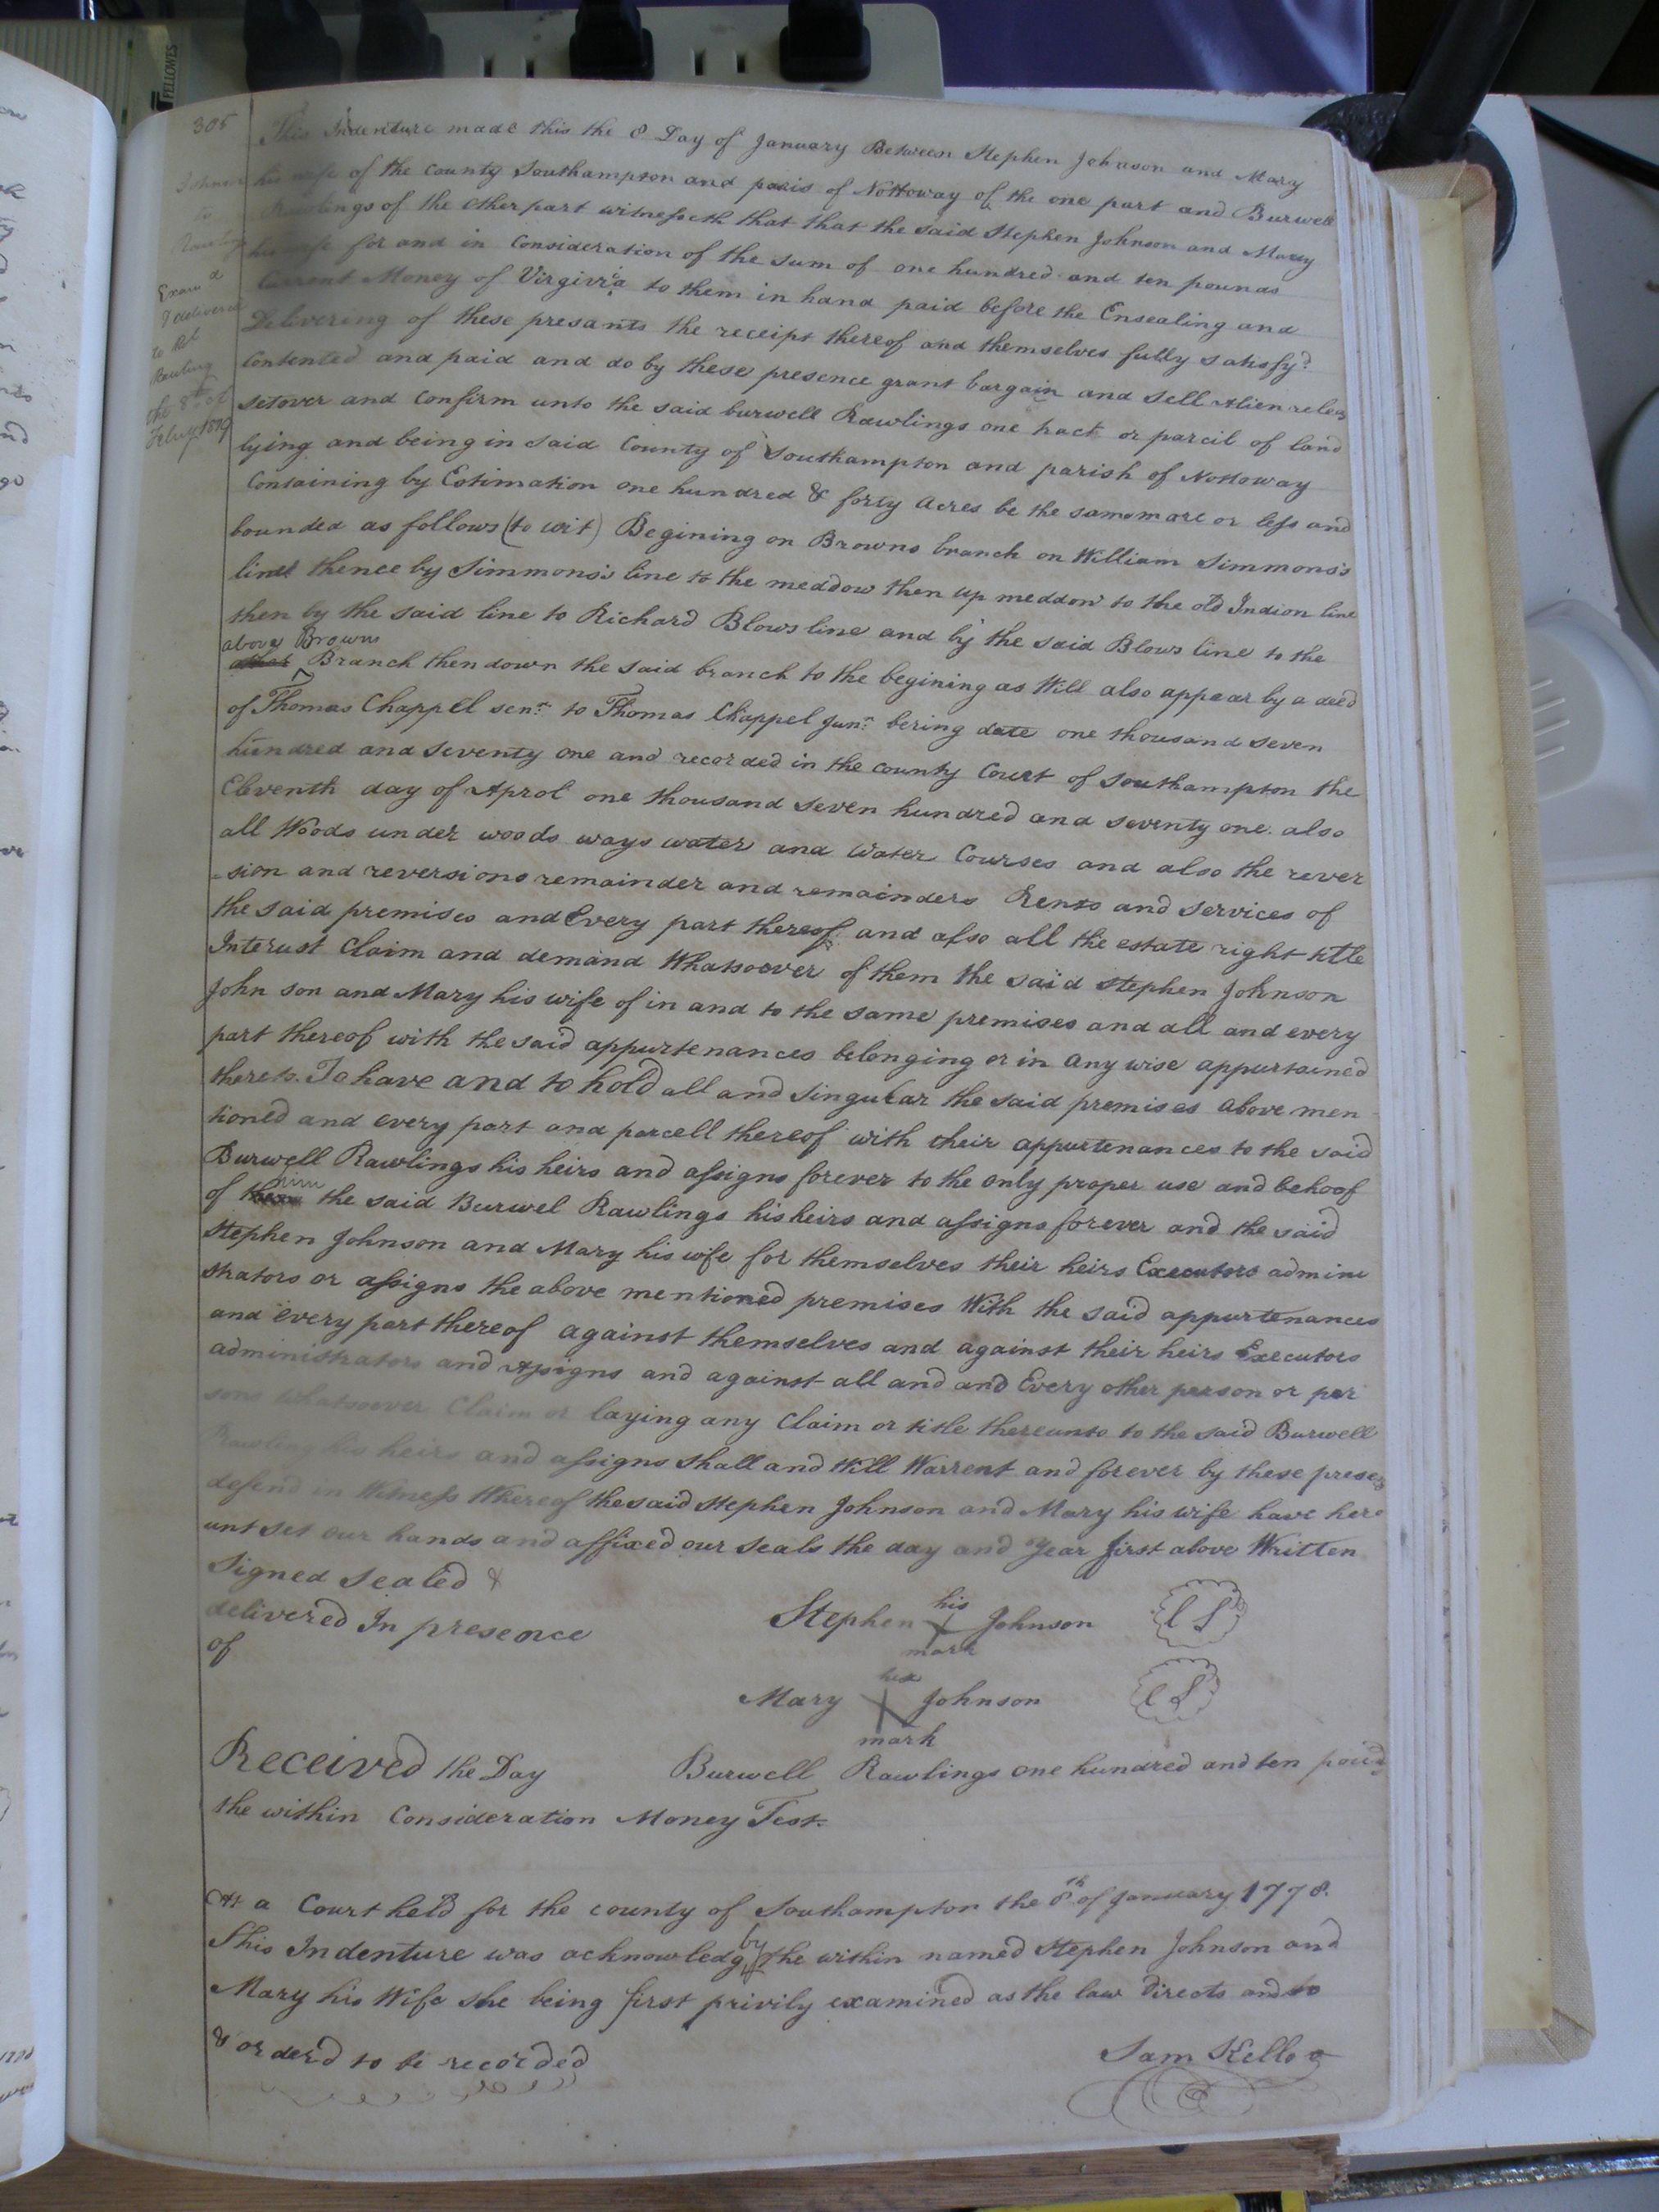 FELLOWES
305
Johnson
to
Rawlings
Exam d
& delivered
to
Rawling
the 8th of
Feby 1819
This Indenture made this the 8 Day of January Between Stephen Johnson and Mary
his wife of the County Southampton and paris of Nottoway of the one part and Burwell
Rawlings of the Other part witnesseth that that the said Stephen Johnson and Mary
his wife for and in Consideration of the sum of one hundred and ten pounds
Current Money of Virginia to them in hand paid before the Ensealing and
Delivering of these presants the receipt thereof and themselves fully satisfyd
Contented and paid and do by these presence grant bargain and Sell Alien releas
setover and Confirm unto the said burwell Rawlings one tract or parcil of land
lying and being in said County of Southampton and parish of Nottoway
Containing by Estimation one hundred & forty Acres be the same more or less and
bounded as follows (to wit) Begining on Browns branch on William Simmons's
line thence by Simmons's line to the meddow then up meddow to the old Indion line
then by the said line to Richard Blows line and by the said Blows line to the
above Browns
Branch then down the said branch to the begining as Will also appear by a deed
of Thomas Chappell senr to Thomas Chappel Junr bering date one thousand seven
hundred and seventy one and recorded in the county Court of Southampton the
Eleventh day of Aprol one thousand seven hundred and seventy one also
all Woods under woods ways water and Water Courses and also the rever
-sion and reversions remainder and remainders Rents and services of
the said premises and Every part thereof and also all the estate right title
Interust Claim and demand Whatsoever of them the said Stephen Johnson
John son and Mary his wife of in and to the same premises and all and every
part thereof with the said appurtenances belonging or in any wise appurtained
thereto. To have and to hold all and Singular the said premises above men
tioned and every part and parcell thereof with their appurtenances to the said
Burwell Rawlings his heirs and assigns forever to the only proper use and behoof
of him the said Burwel Rawlings his heirs and assigns forever and the said
Stephen Johnson and Mary his wife for themselves their heirs Executors admini
strators or assigns the above mentioned premises With the said appurtenances
and every part thereof against themselves and against their heirs Executors
administrators and Assigns and against all and and Every other person or per
sons whatsoever Claim or laying any Claim or title thereunto to the said Burwell
Rawlings his heirs and assigns shall and Will Warrent and forever by these presen
defend in Witness Whereof the said Stephen Johnson and Mary his wife have here
unt set our hands and affixed our Seals the day and Year first above Written
Signed Sealed &
delivered In presence
of
Stephen his X mark Johnson LS
Mary her X mark Johnson LS
Received the Day Burwell Rawlings one hundred and ten pound
the within Consideration Money Test.
At a Court held for the county of Southampton the 8th of January 1778.
This Indenture was acknowledg by the within named Stephen Johnson and
Mary his Wife she being first privily examined as the law Directs and to
& orderd to be recorded
Sam Kello